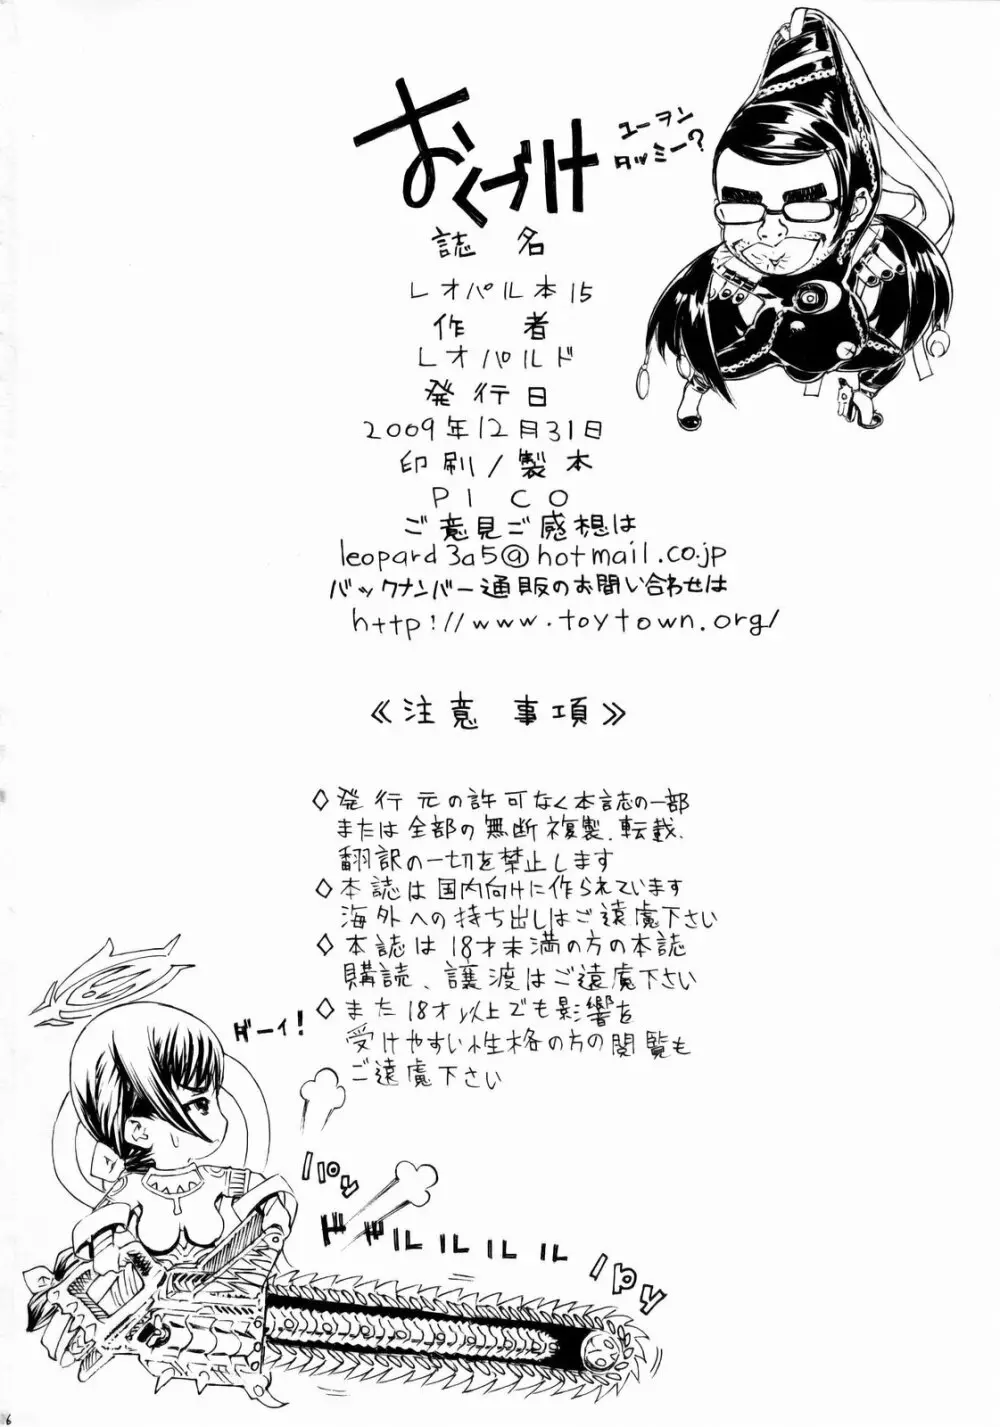 おくづけ
ユーヲン
タッミー?
誌名
レオパル本15
作者
レオパルド
発行日
2009年12月31日
印刷/製本
PICO
ご意見ご感想は
leopard3a5@hotmail.co.jp
バックナンバー通販のお問い合わせは
http://www.toytown.org/
《注意 事項》
◇発行元の許可なく本誌の一部
または全部の無断複製、転載、
翻訳の一切を禁止します
◇本誌は国内向けに作られています
海外への持ち出しはご遠慮下さい
◇本誌は18才未満の方の本誌
購読、譲渡はご遠慮下さい
◇また18才以上でも影響を
受けやすい性格の方の閲覧も
ご遠慮下さい
ドドルルルル
6